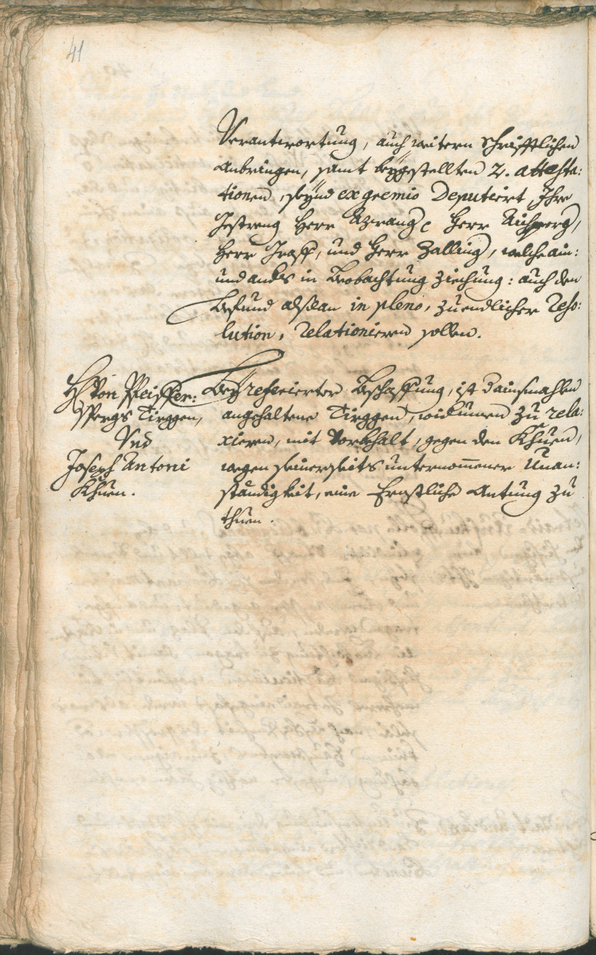 41
Verantwortung, auch weitern schrifftlichen
Anbringen, samt beygestellten 2. Attesta:
tionen, seynd ex gremio Deputiert Ihro
Gestreng Herr Herr
Herr und Herr Zalling, welche ain:
und anders in Beobachtung ziechung: auch den
Befund alßdan in pleno, zu endlicher Reso:
lution, relationieren sollen.
H: von Pfeiffer:
spergs
Und
Joseph Antoni
Khüen.
Bey referierter Beschaffung, ist dainsmahlen
angehaltene widumen zu rela:
xieren, mit Vorbehalt, gegen den Khüen,
wegen seinerseits unternommener Unan:
ständigkeit, eine Ernstliche Antung zu
thuen.